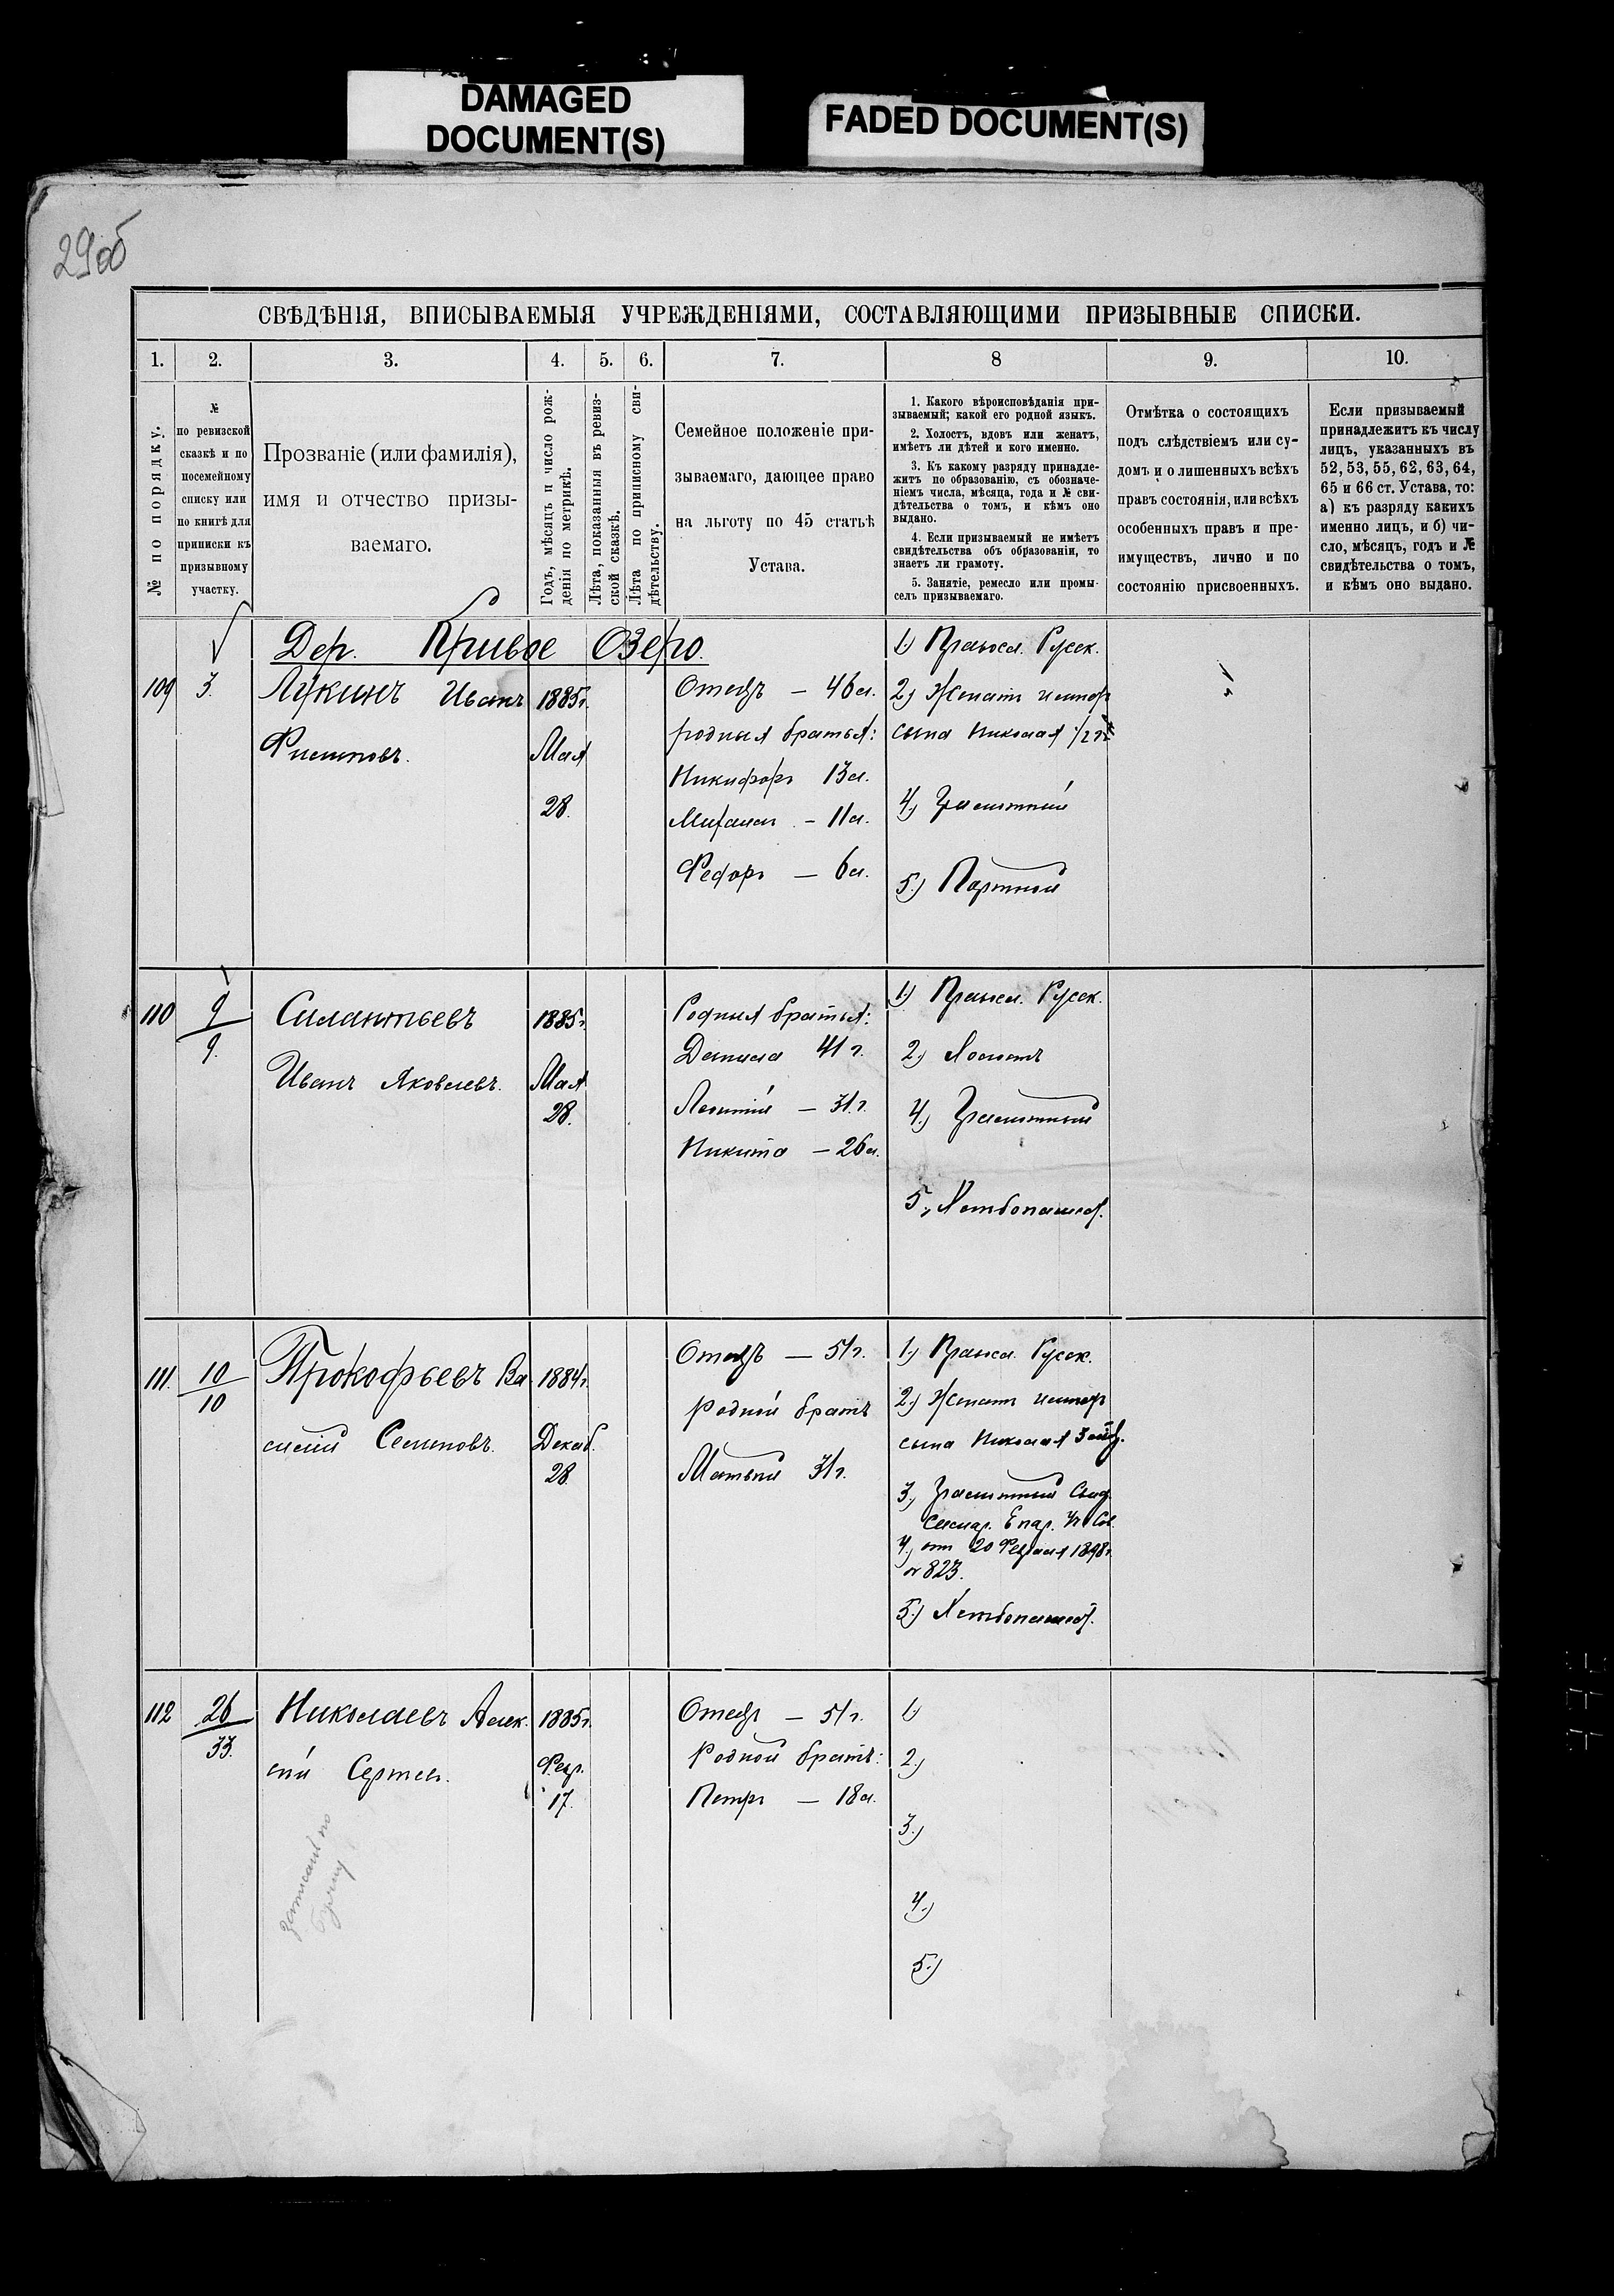 DAMAGED
DOCUMENT(S)
FADED DOCUMENT(S)
29об
СВѢДѢНІЯ, ВПИСЫВАЕМЫЯ УЧРЕЖДЕНІЯМИ, СОСТАВЛЯЮЩИМИ ПРИЗЫВНЫЕ СПИСКИ.
1. 2. 3. 4. 5. 6. 7. 8 9. 10.
№ по порядку.
№
по ревизской
сказкѣ и по
посемейному
списку или
по книгѣ для
приписки къ
призывному
участку.
Прозваніе (или фамилія),
имя и отчество призы-
ваемаго.
Годъ, мѣсяцъ и число рож-
денія по метрикѣ.
Лѣта, показанныя въ ревиз-
ской сказкѣ.
Лѣта по приписному сви-
дѣтельству.
Семейное положеніе при-
зываемаго, дающее право
на льготу по 45 статьѣ
Устава.
1. Какого вѣроисповѣданія при-
зываемый; какой его родной языкъ.
2. Холостъ, вдовъ или женатъ,
имѣетъ ли дѣтей и кого именно.
3. Къ какому разряду принадле-
житъ по образованію, съ обозначе-
ніемъ числа, мѣсяца, года и № сви-
дѣтельства о томъ, и кѣмъ оно
выдано.
4. Если призываемый не имѣетъ
свидѣтельства объ образованіи, то
знаетъ ли грамоту.
5. Занятіе, ремесло или промы-
селъ призываемаго.
Отмѣтка о состоящихъ
подъ слѣдствіемъ или су-
домъ и о лишенныхъ всѣхъ
правъ состоянія, или всѣхъ
особенныхъ правъ и пре-
имуществъ, лично и по
состоянію присвоенныхъ.
Если призываемый
принадлежитъ къ числу
лицъ, указанныхъ въ
52, 53, 55, 62, 63, 64,
65 и 66 ст. Устава, то:
а) къ разряду какихъ
именно лицъ, и б) чи-
сло, мѣсяцъ, годъ и №
свидѣтельства о томъ,
и кѣмъ оно выдано.
Дер. Кривое Озеро.
109 3. Лукинъ Иванъ
Филиповъ.
1885г.
Мая
28.
Отецъ – 46 л.
родныя братья:
Никифоръ 13 л.
Михаилъ – 11 л.
Федоръ – 6 л.
1) Правосл. Русск.
2) Женатъ имѣетъ
сына Николая
4) Грамотный
5) Портной
110 9
9.
Силантьевъ
Иванъ Яковлевъ.
1885г.
Мая
28.
Родныя братья:
Данила 41 г.
Леонтій – 31 г.
Никита – 26 л.
1) Правосл. Русск.
2) Холостъ
4) Грамотный
5, Хлѣбопашес.
111. 10
10
Прокофьевъ Ва-
силій Семеновъ.
1884г.
Декаб.
28.
Отецъ – 51 г.
родной братъ
Матвѣй 31 г.
1) Правосл. Русск.
2) Женатъ имѣетъ
сына Николая
3, Грамотный Свид.
Самар. Епар. Уч. Сов.
4, отъ 20 Февраля 1898г.
№ 823.
5) Хлѣбопашес.
112 26
33.
Николаевъ Алек-
сѣй Сергеев.
1885г.
Февр.
17.
Отецъ – 51 г.
Родной братъ:
Петръ – 18 л.
1)
2)
3)
4)
5)